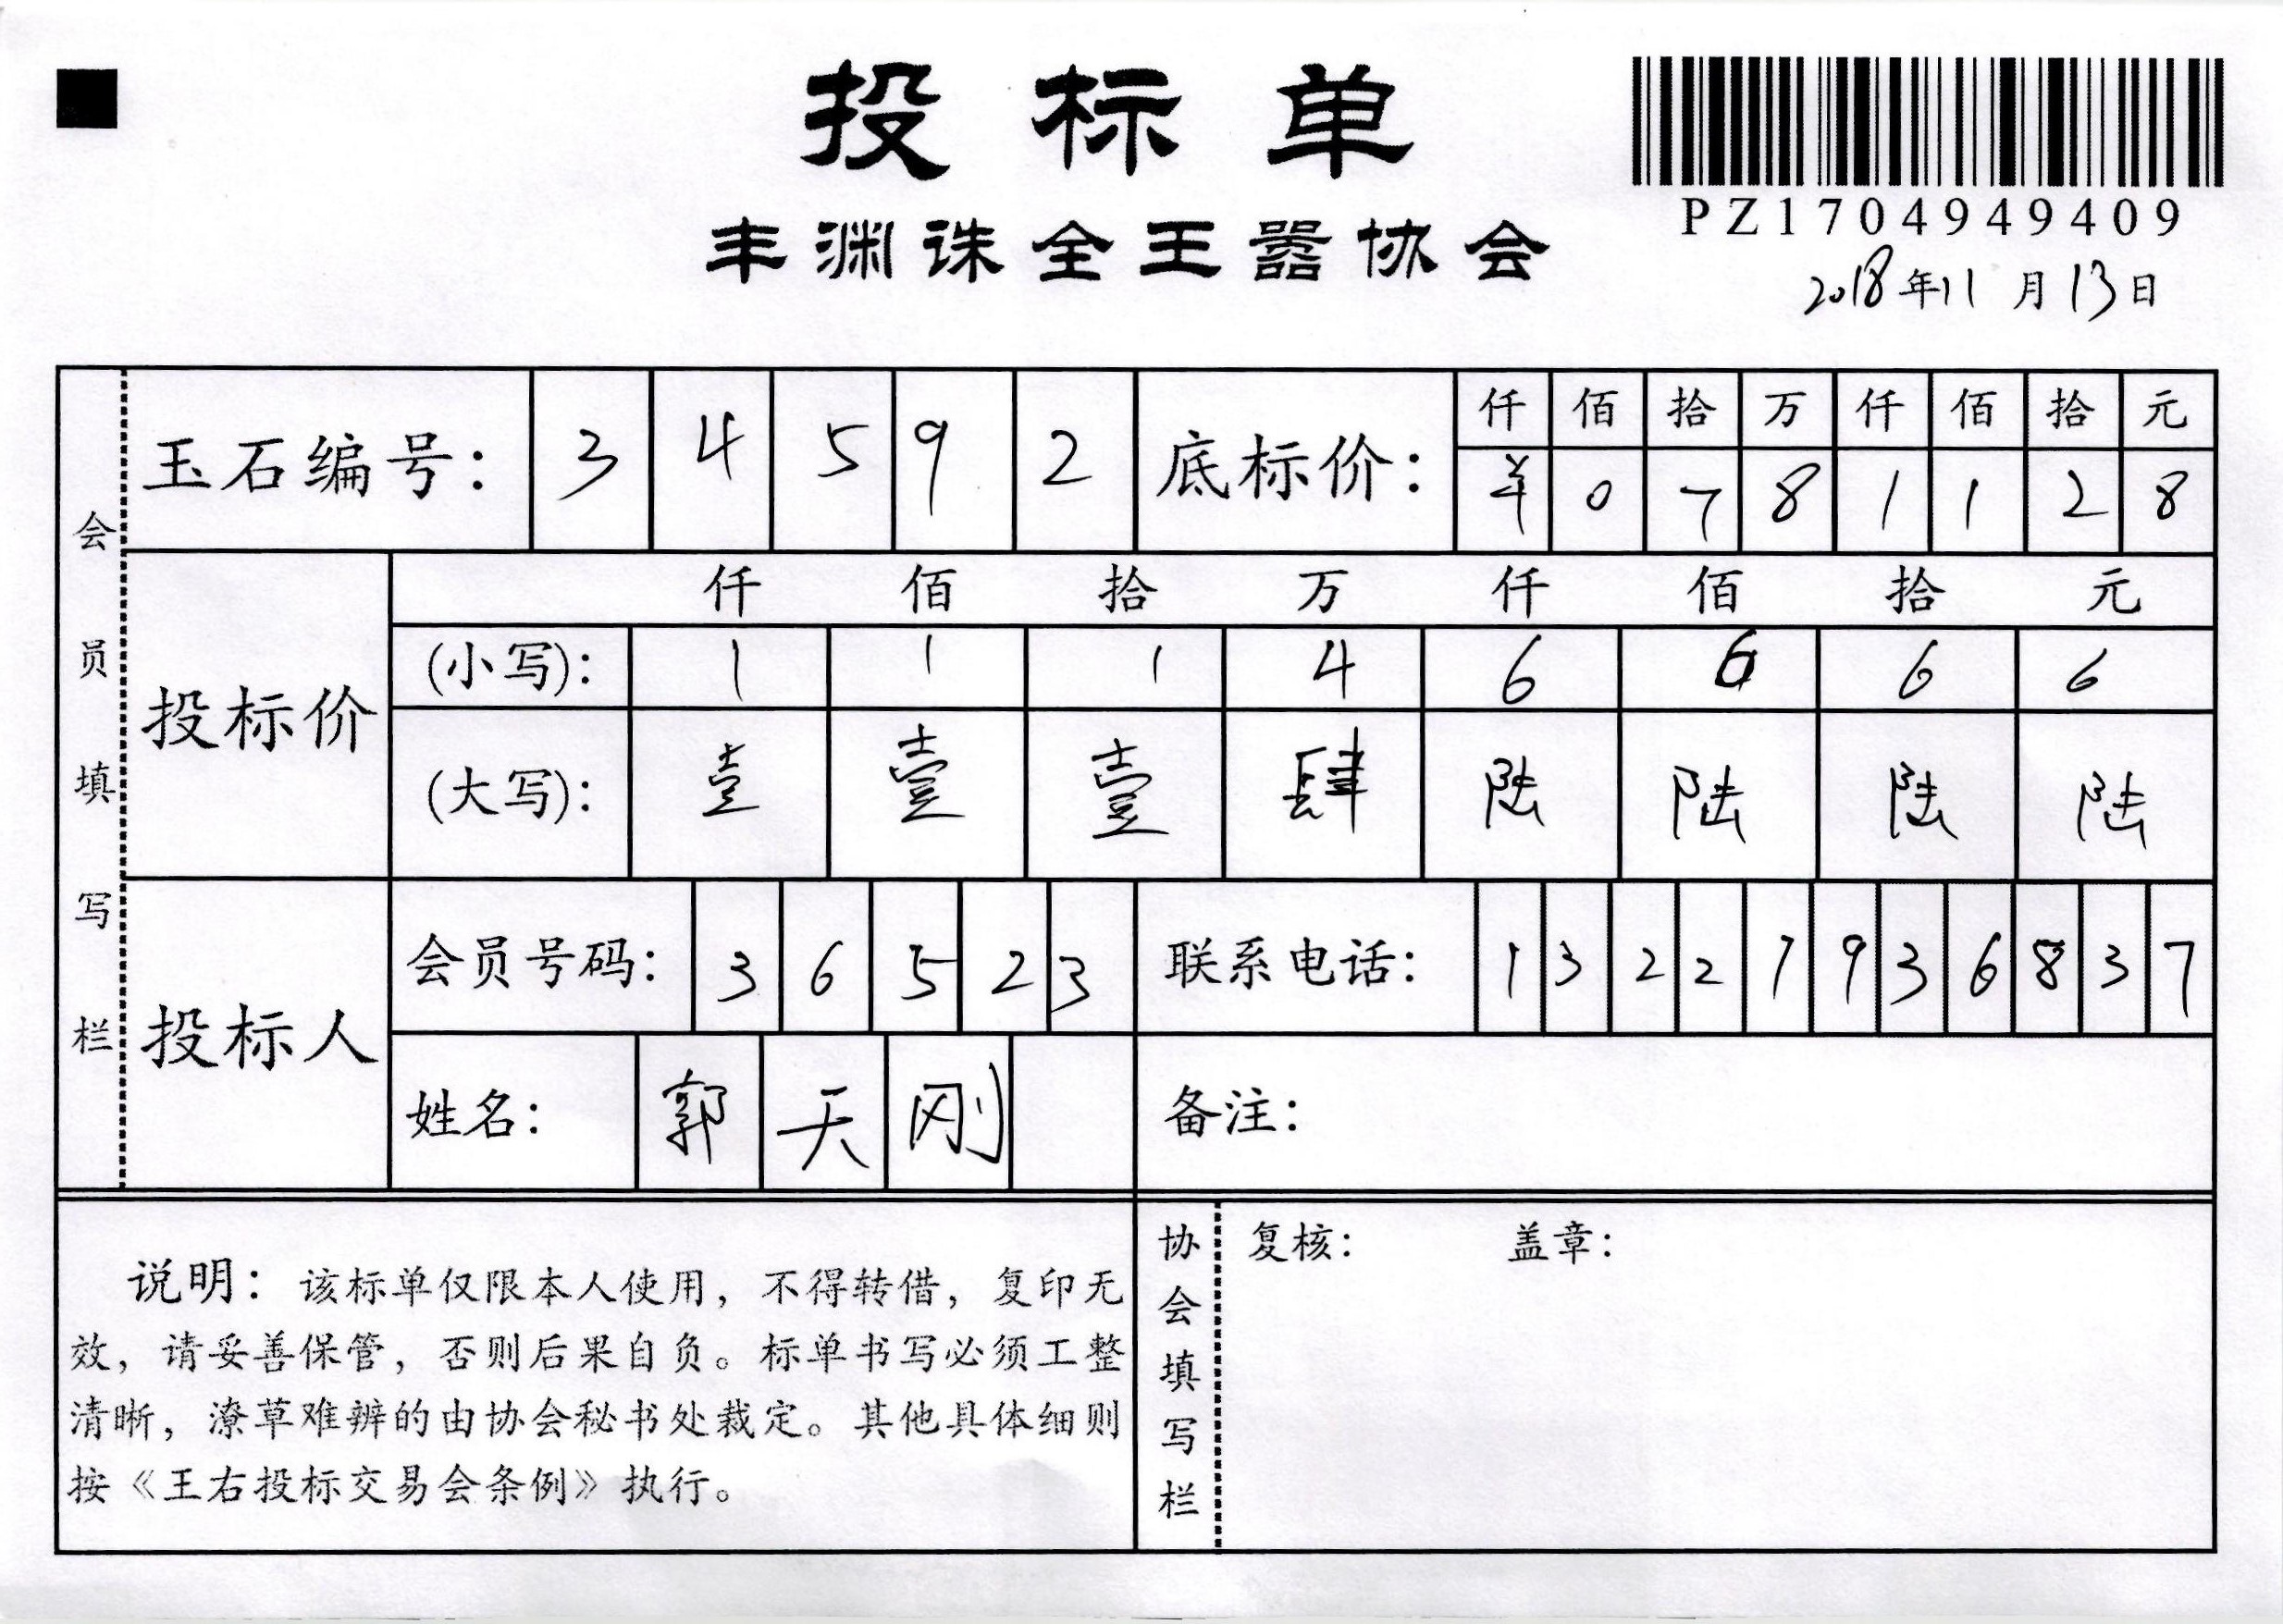 投标单
丰渊诛全王器协会
PZ1704949409
2018年11月13日
会员填写栏
玉石编号: 3 4 5 9 2 底标价: 仟 佰 拾 万 仟 佰 拾 元
¥ 0 7 8 1 1 2 8
投标价 仟 佰 拾 万 仟 佰 拾 元
(小写): 1 1 1 4 6 6 6 6
(大写): 壹 壹 壹 肆 陆 陆 陆 陆
投标人 会员号码: 3 6 5 2 3 联系电话: 1 3 2 2 7 9 3 6 8 3 7
姓名: 郭 天 刚 备注:
说明: 该标单仅限本人使用, 不得转借, 复印无
效, 请妥善保管, 否则后果自负。标单书写必须工整
清晰, 潦草难辨的由协会秘书处裁定。其他具体细则
按《王右投标交易会条例》执行。
协会填写栏
复核: 盖章: